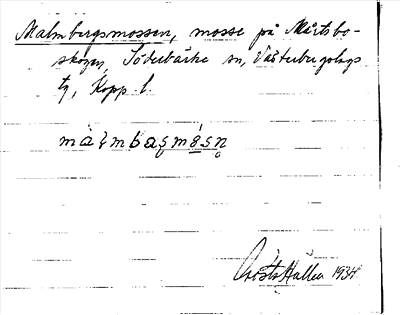 Malmbergsmossen, mosse på Mårtsbo-
skogen, Söderbärke sn, Västerbergslags
tg, Kopp. l.
Gösta Hallin 1934